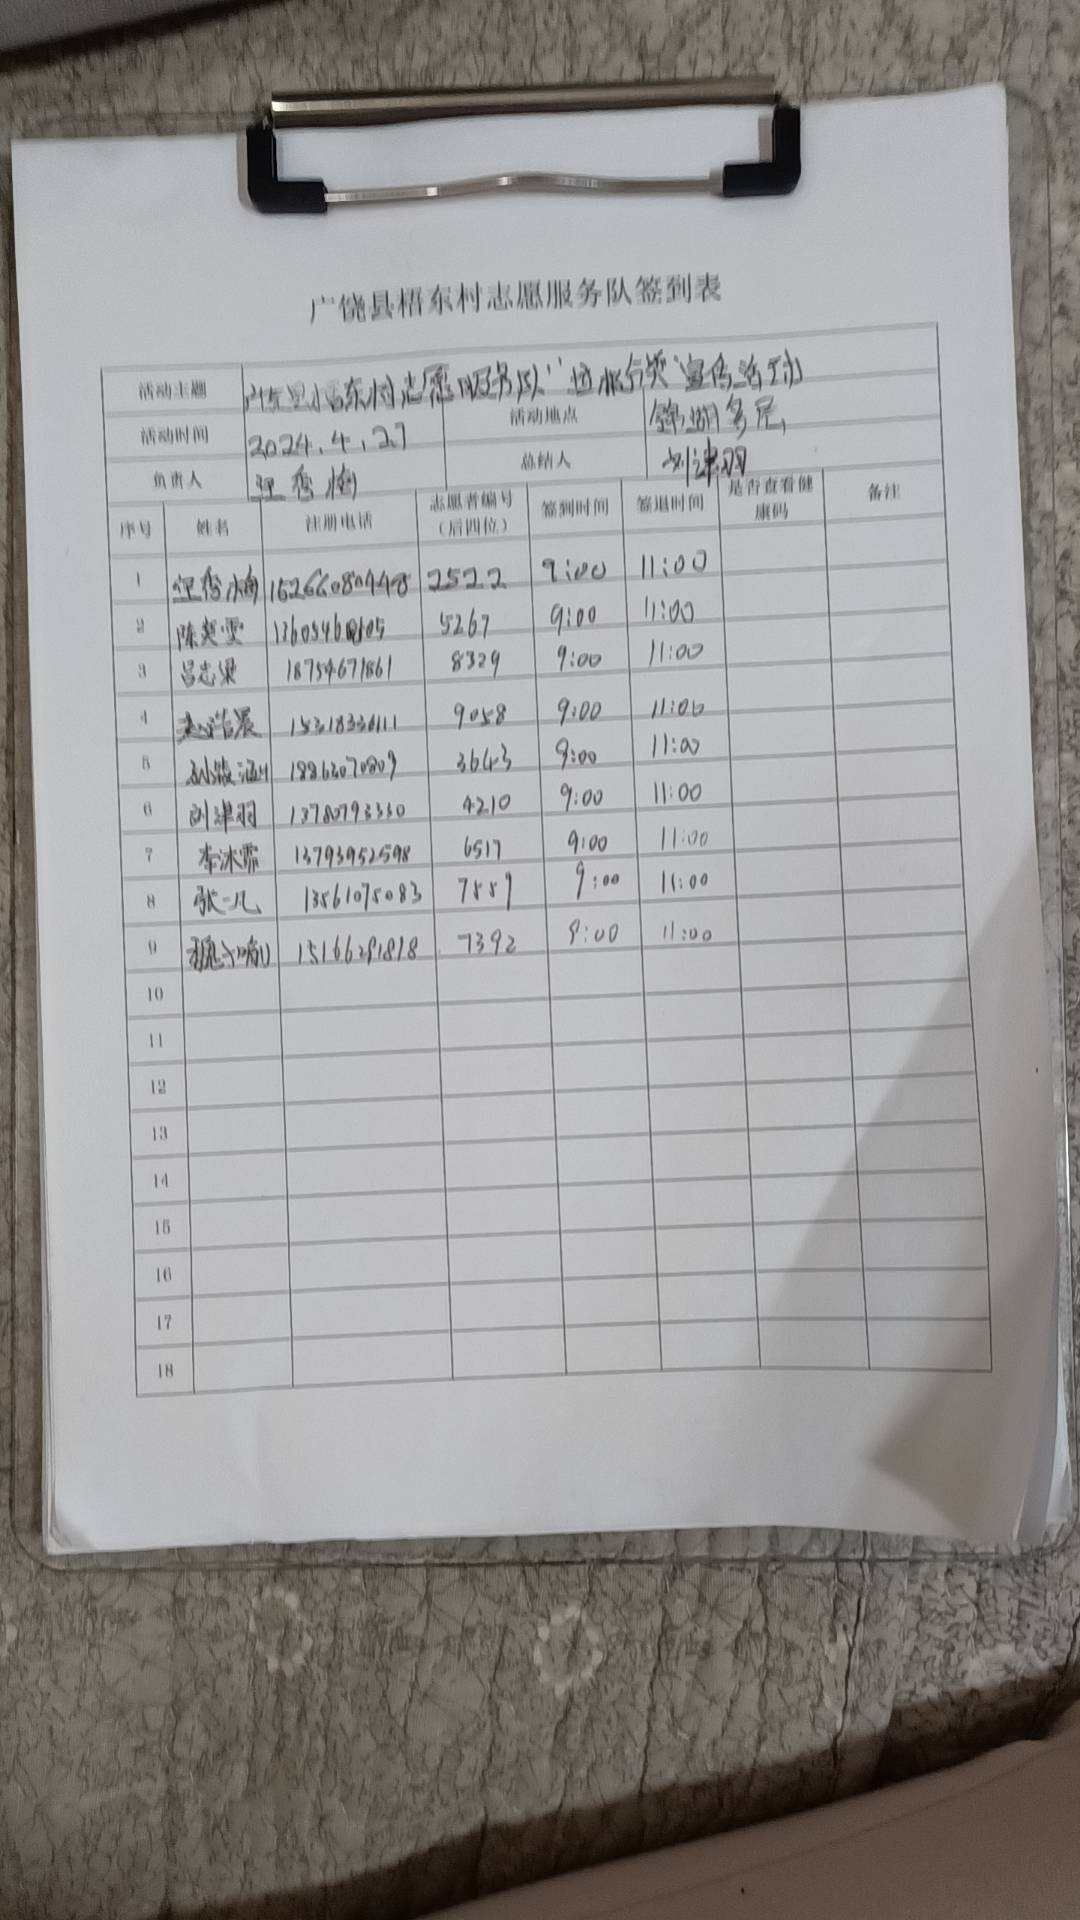 广饶县梧东村志愿服务队签到表
活动主题 广饶县梧东村志愿服务队"垃圾分类"宣传活动
活动时间 2024.4.27 活动地点 锦湖多层
负责人 汪秀梅 总结人 刘津羽
序号 姓名 注册电话 志愿者编号（后四位） 签到时间 签退时间 是否查看健康码 备注
1 汪秀梅 15266080448 2522 9:00 11:00
2 陈爽雯 5267 9:00 11:00
3 吕志梁 18754671861 8329 9:00 11:00
4 赵浩晨 15318336111 9058 9:00 11:00
5 3643 9:00 11:00
6 刘津羽 13780793330 4210 9:00 11:00
7 李沐霏 13793952598 6517 9:00 11:00
8 张一凡 13561075083 7559 9:00 11:00
9 15166291818 7392 9:00 11:00
10
11
12
13
14
15
16
17
18